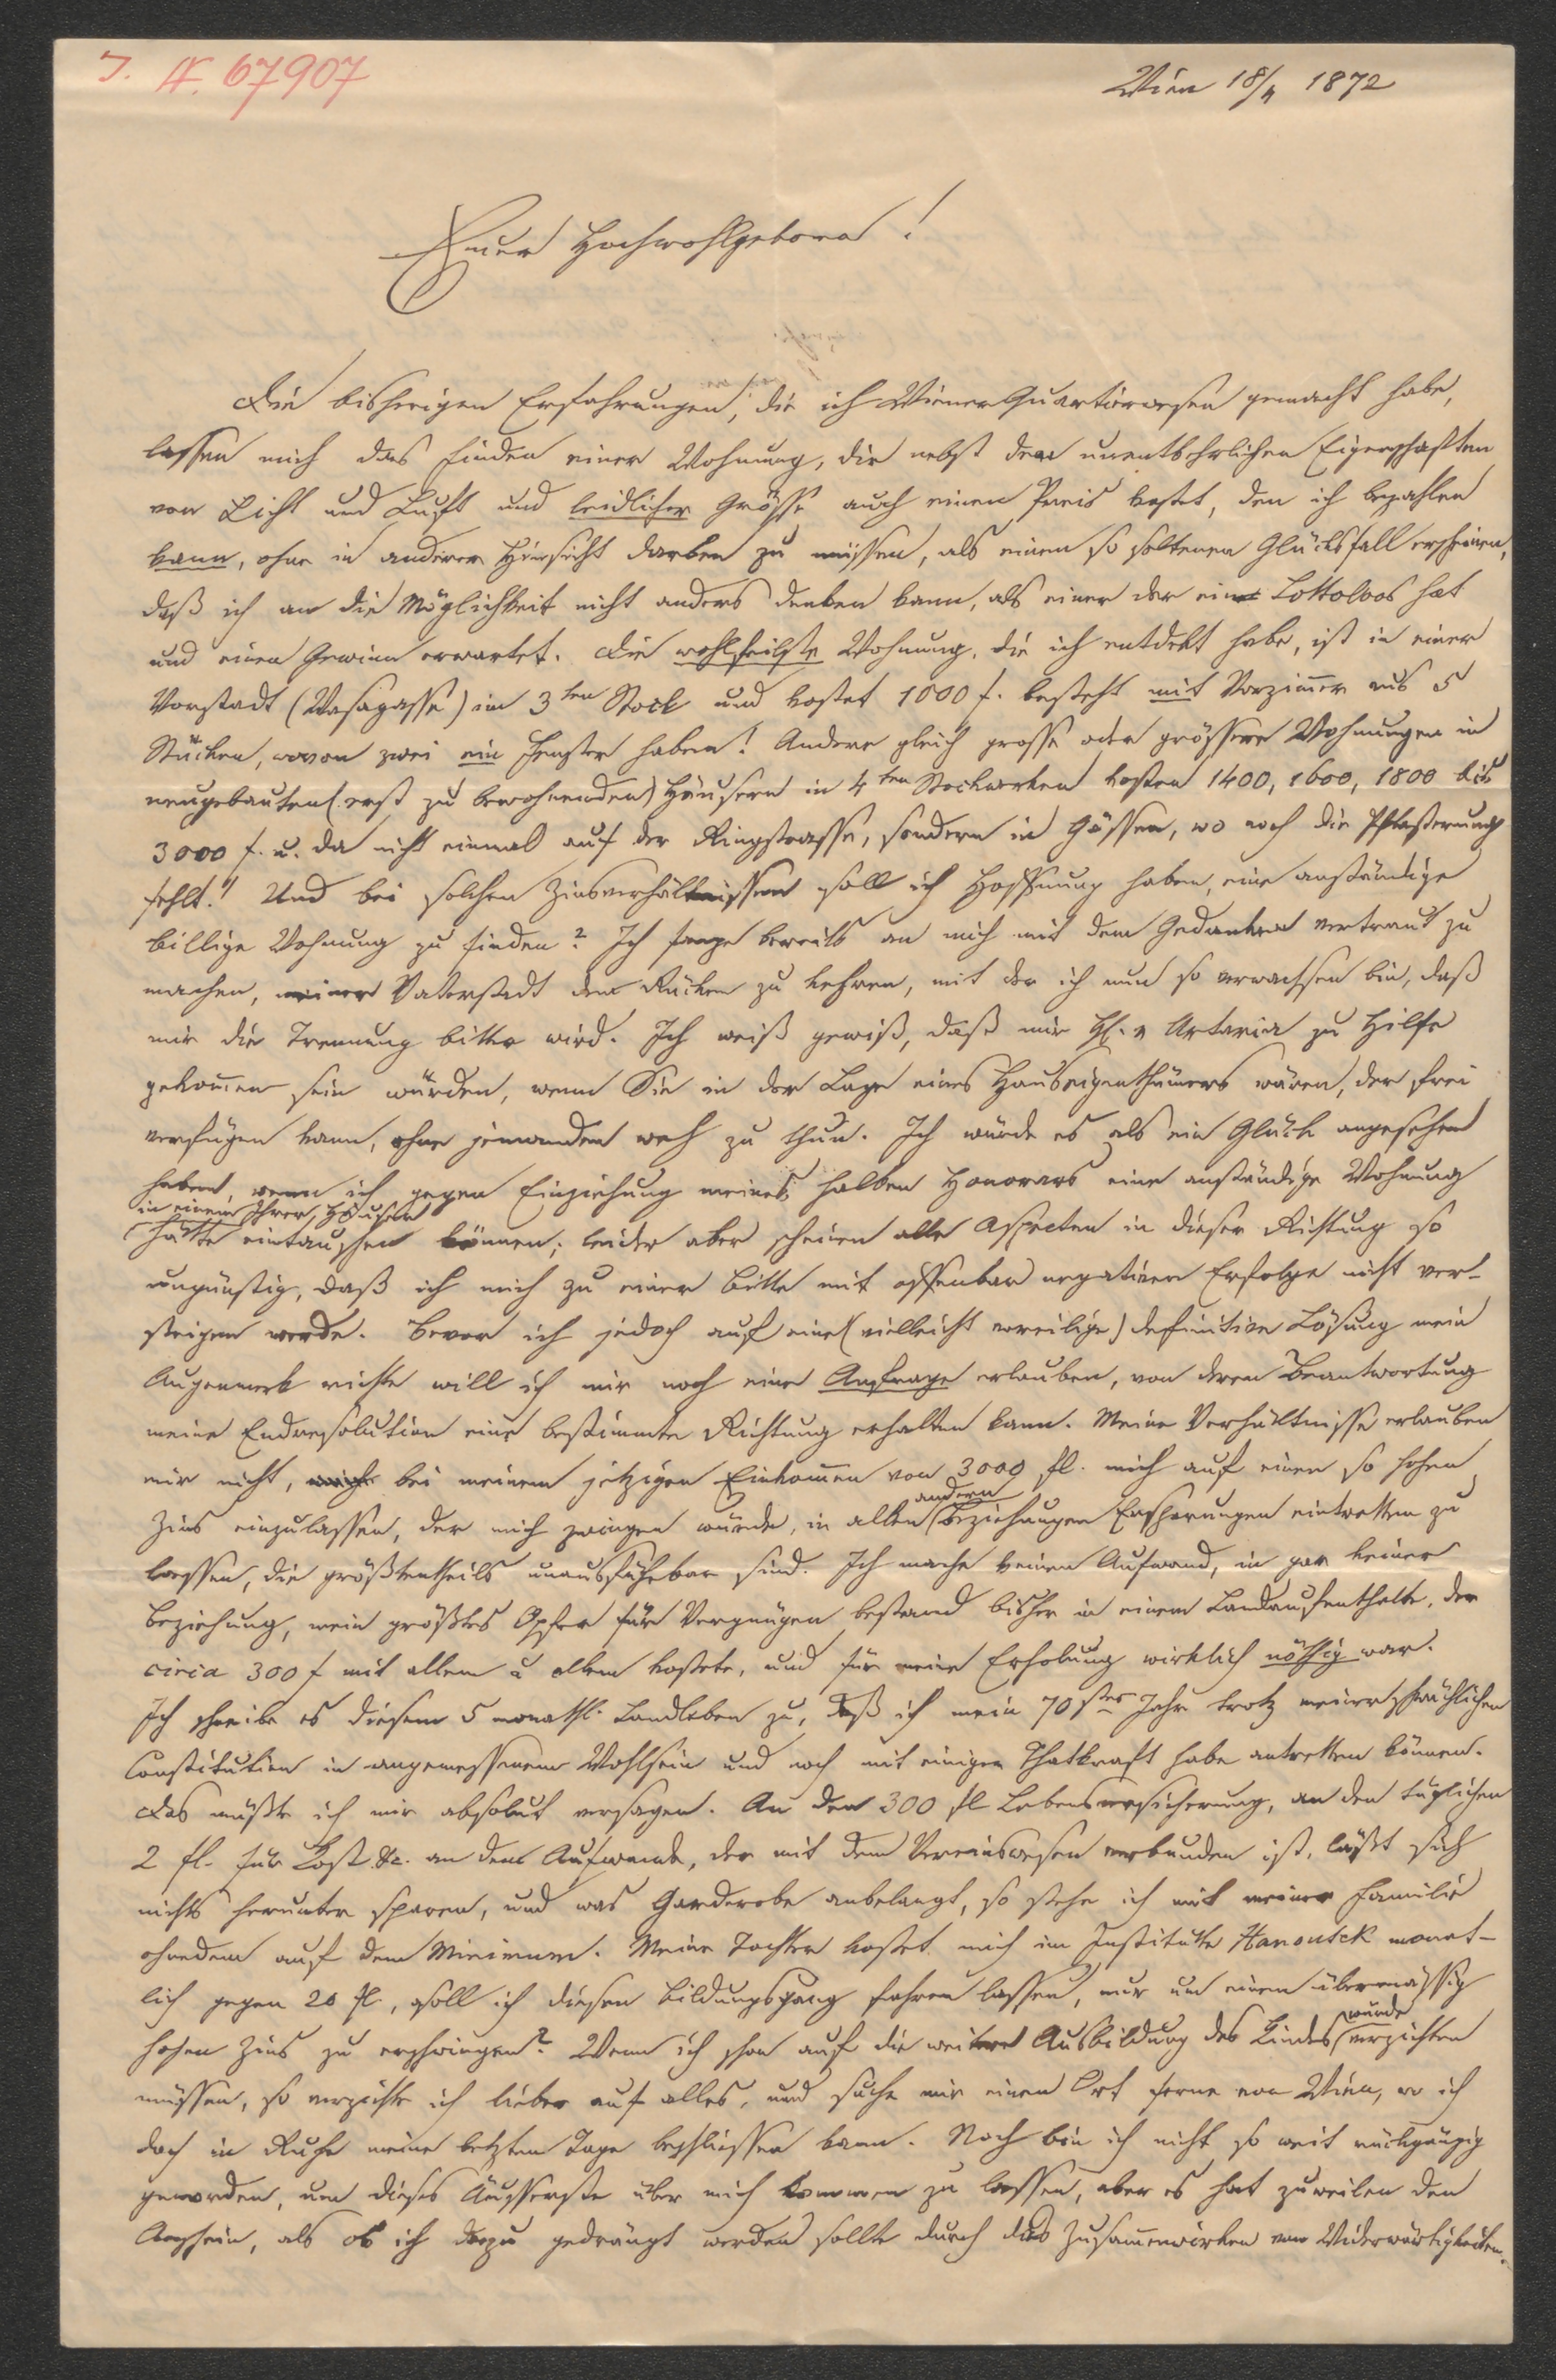 J. N. 67907
Wien 18/4 1872
Euer Hochwohlgeboren!
Die bisherigen Erfahrungen, die ich Wiener Quartierwesen gemacht habe,
lassen mich das Finden einer Wohnung, die nebst den unentbehrlichen Eigenschaften
von Licht und Luft und leidlicher Grösse auch einen Preis kostet, den ich bezahlen
kann, ohne in anderer Hinsicht darben zu müssen, als einen so seltenen Glücksfall erscheinen,
daß ich an die Möglichkeit nicht anders denken kann, als einer der ein Lottoloos hat
und einen Gewinn erwartet. Die wohlfeilste Wohnung, die ich entdekt habe, ist in einer
Vorstadt (Wasagasse) im 3ten Stock und kostet 1000 f. besteht mit Vorzimer aus 5
Stücken, wovon zwei ein Fenster haben! Andere gleich grosse oder grössere Wohnungen in
neugebauten (erst zu bewohnenden) Häusern in 4ten Stockwerken kosten 1400, 1600, 1800 bis
3000 f. u. da nicht einmal auf der Ringstrasse, sondern in Gässen, wo noch die Pflasterung
fehlt! Und bei solchen Zinsverhältnissen soll ich Hoffnung haben, eine anständige
billige Wohnung zu finden? Ich fange bereits an mich mit dem Gedanken vertraut zu
machen, meiner Vaterstadt den Rücken zu kehren, mit der ich nun so verwachsen bin, daß
mir die Trennung bitter wird. Ich weiß gewiß, daß mir H. v Artaria zu Hilfe
gekomen sein würden, wenn Sie in der Lage eines Hauseigenthümers wären, der frei
verfügen kann, ohne jemanden weh zu thun. Ich würde es als ein Glück angesehen
haben, wenn ich gegen Einziehung meines halben Honorars eine anständige Wohnung
in einem Ihrer Häuser
hätte eintauschen können; leider aber scheinen alle Aspecten in dieser Richtung so
ungünstig, daß ich mich zu einer Bitte mit offenbar negativem Erfolge nicht ver-
steigen werde. Bevor ich jedoch auf eine (vielleicht voreilige) definitive Lösung mein
Augenmerk richte will ich mir noch eine Anfrage erlauben, von deren Beantwortung
meine Endresolution eine bestimmte Richtung erhalten kann. Meine Verhältnisse erlauben
mir nicht, bei meinem jetzigen Einkomen von 3000 fl. mich auf einen so hohen
andern
Zins einzulassen, der mich zwingen würde, in allen Beziehungen Ersparungen eintretten zu
lassen, die größtentheils unausführbar sind. Ich mache keinen Aufwand, in gar keiner
Beziehung, mein größtes Opfer für Vergnügen bestand bisher in einem Landaufenthalte, der
circa 300 f mit allem u allem kostete, und für meine Erholung wirklich nöthig war.
Ich schreibe es diesem 5 monathl. Landleben zu, daß ich mein 70stes Jahr trotz meiner schwächlichen
Constitution in angemessenem Wohlsein und noch mit einiger Thatkraft habe antretten können.
Das müßte ich mir absolut versagen. An den 300 fl Lebensversicherung, an den täglichen
2 fl. für Kost &c. an dem Aufwande, der mit dem Vereinswesen verbunden ist, läßt sich
nichts herunter sparen, und was Garderobe anbelangt, so stehe ich mit meiner Familie
ohnedem auf dem Minimum. Meine Tochter kostet mich im Institutte Hanoutek monat-
lich gegen 20 fl., soll ich diesen Bildungsgang fahren lassen, nur um einen übermässig
würde
hohen Zins zu erschwingen? Wenn ich schon auf die weitere Ausbildung des Kindes verzichten
müssen, so verzichte ich lieber auf alles, und suche mir einen Ort ferne von Wien, wo ich
doch in Ruhe meine letzten Tage beschliessen kann. Noch bin ich nicht so weit rückgängig
geworden, um dieses Äusserste über mich kommen zu lassen, aber es hat zuweilen den
Anschein, als ob ich dazu gedrängt werden sollte durch das Zusamenwirken von Widerwärtigkeiten.